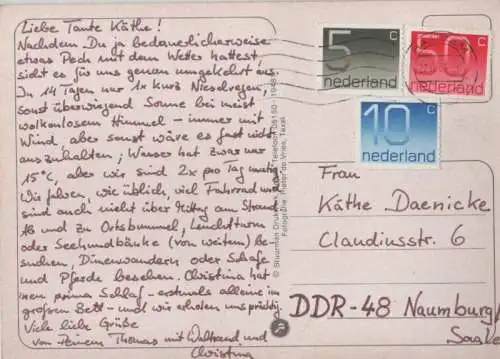 Liebe Tante Käthe!
Nachdem Du ja bedauerlicherweise
etwas Pech mit dem Wetter hattest,
sieht es für uns genau umgekehrt aus.
In 14 Tagen nur 1x kurz Nieselregen,
sonst überwiegend Sonne bei meist
wolkenlosem Himmel - immer mit
Wind, aber sonst wäre es fast nicht
auszuhalten; Wasser hat zwar nur
15°C, aber wir sind 2x pro Tag
Wir fahren, wie üblich viel Fahrrad und
sind auch nicht über Mittag am Strand.
Ab und zu Ortsbummel, Leuchtturm
oder Seehundbänke (von weitem) be-
suchen, Dünenwandern oder Schafe
und Pferde besehen. Christina hat
ihren prima Schlaf - erstmals alleine im
großen Bett - und wir erholen uns prächtig.
Viele liebe Grüße
von Deinem Thomas mit Waltraud und
Christina
© Stuurman Drukkerij Telefoon 05150
Fotografie: Pieter de Vries, Texel
5 c
nederland
50 c
nederland
10 c
nederland
Frau
Käthe Daenicke
Claudiusstr. 6
DDR-48 Naumburg/
Saale